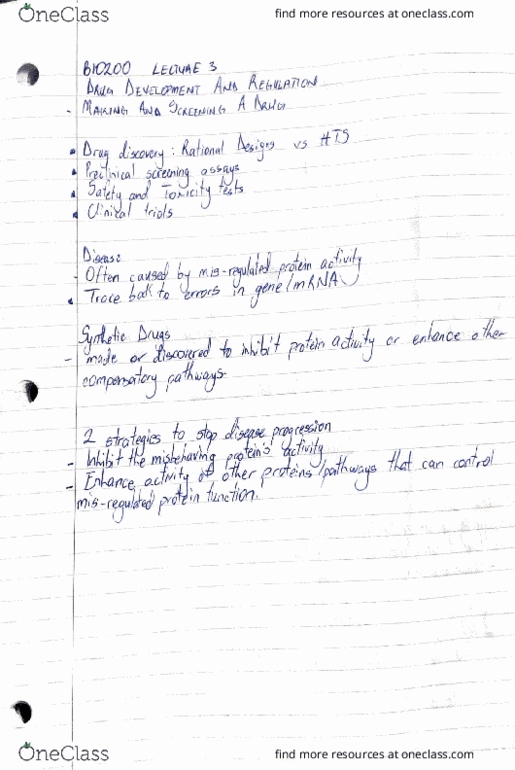 OneClass find more resources at oneclass.com
BIO200 LECTURE 3
DRUG DEVELOPMENT AND REGULATION
- MAKING AND SCREENING A DRUG
• Drug discovery : Rational Designs vs HTS
• Preclinical screening assays
• Safety and Toxicity tests
• Clinical trials
Disease
- Often caused by mis-regulated protein activity
• Trace bak to errors in gene/mRNA
Synthetic Drugs
- made or discovered to inhibit protein activity or enhance other
compensatory pathways.
2 strategies to stop disease progression
- Inhibit the misbehaving protein's activity
- Enhance activity of other proteins/pathways that can control
mis-regulated protein function.
OneClass find more resources at oneclass.com